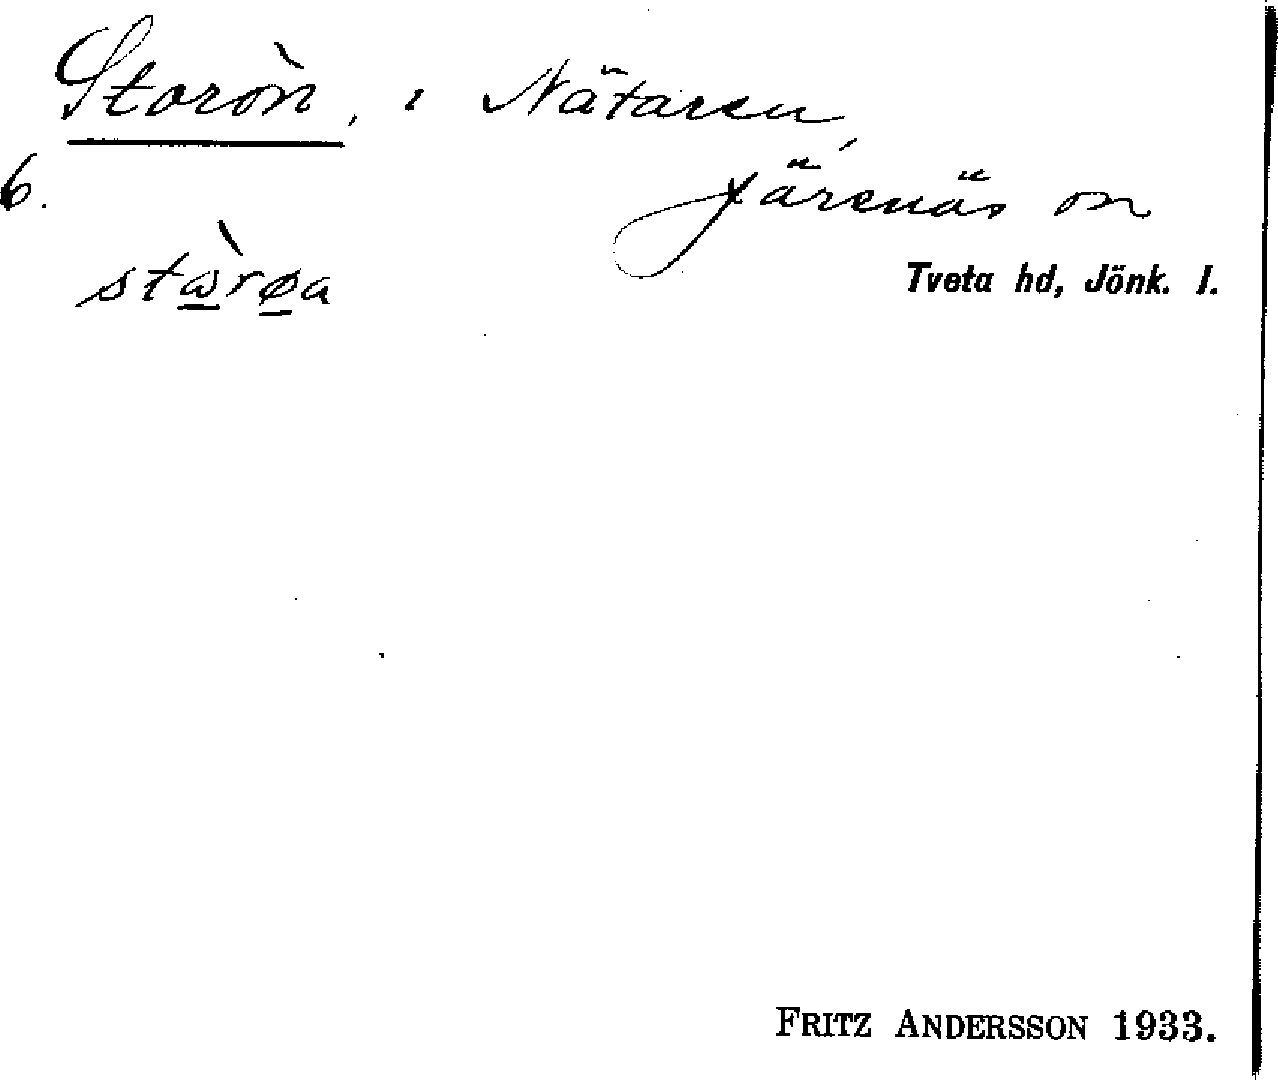 Storön, i Nätaren,
Järsnäs sn
6.
stὼ̲rø̲a
Tveta hd, Jönk. l.
FRITZ ANDERSSON 1933.